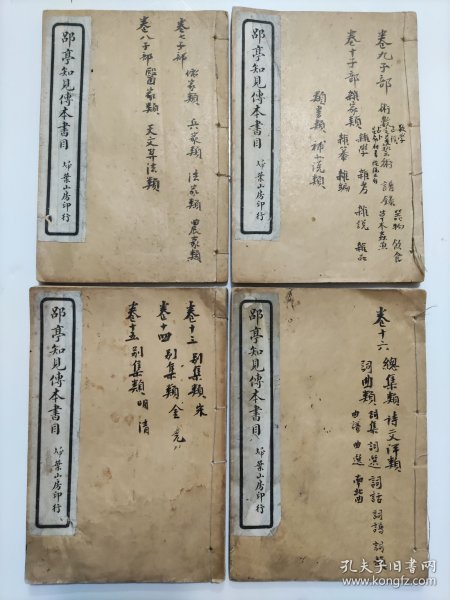 郘亭知見傳本書目
埽葉山房印行
卷七子部 儒家類 兵家類 法家類 農家類
卷八子部 醫家類 天文算法類
郘亭知見傳本書目
埽葉山房印行
卷九子部 術數 藝術 譜錄 器物 飲食 草木蟲魚
卷十子部 雜家類 雜學 雜考 雜說 雜品 雜纂 雜編
類書類 小說類
郘亭知見傳本書目
埽葉山房印行
卷十三 別集類 宋
卷十四 別集類 金 元
卷十五 別集類 明 清
郘亭知見傳本書目
埽葉山房印行
卷十六 總集類 詩文評類
詞曲類 詞集 詞選 詞話 詞譜 詞韻
曲譜 曲選 南北曲
孔夫子旧书网
www.kongfz.com